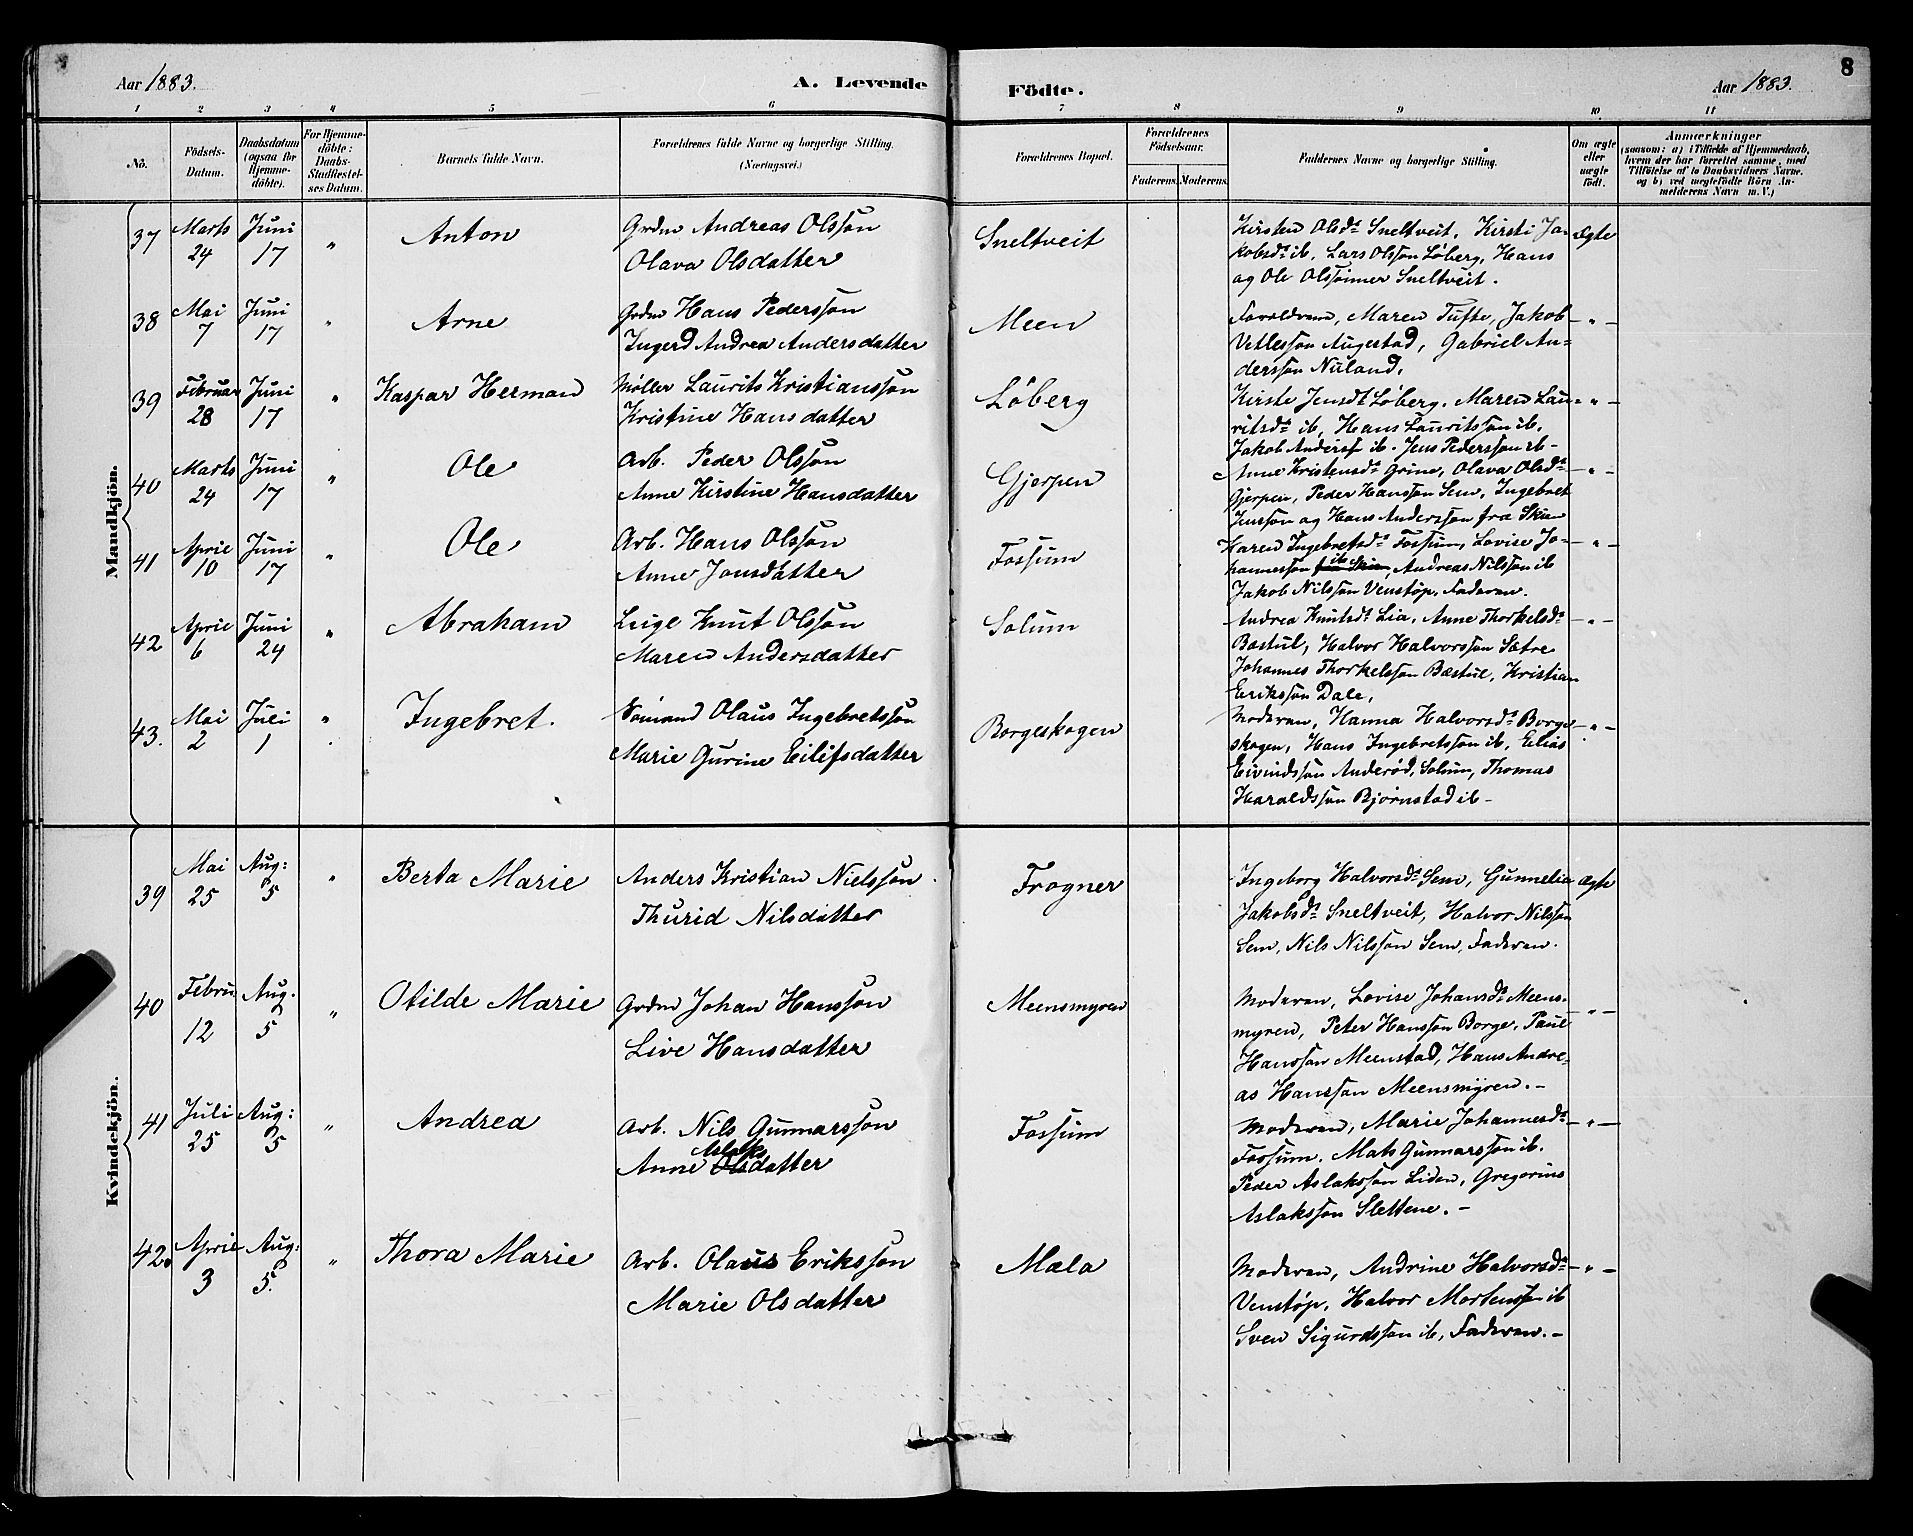 Aar 1883.
A. Levende
Födte.
Aar 1883.
8
1 2 3 4 5 6 7 8 9 10 11
No.
Födsels-
Datum.
Daabsdatum
(ogsaa for
Hjemme-
döbte).
For Hjemme-
döbte:
Daabs-
Stadfæstel-
ses Datum.
Barnets fulde Navn.
Forældrenes fulde Navne og borgerlige Stilling.
(Næringsvei.)
Forældrenes Bopæl.
Forældrenes
Födselsaar.
Faderens. Moderens.
Faddernes Navne og borgerlige Stilling.
Om ægte
eller
uægte
født.
Anmærkninger
(saasom: a) i Tilfælde af Hjemmedaab,
hvem der har forrettet samme, med
Tilföielse af to Daabsvidners Navne,
og b) ved uægtefödte Börn An-
melderens Navn m. V.)
Mandkjön.
37 Marts 24 Juni 17 " Anton
Grdm Andreas Olssøn
Olava Olsdatter
Sneltveit
Kirsten Olsdr Sneltveit, Kirsti Ja-
kobsdr ib, Lars Olssøn Løberg, Hans
og Ole Olssønner Sneltveit.
Ægte
38 Mai 7 Juni 17 " Arne
Grdm Hans Pederssøn
Ingerd Andrea Andersdatter
Meen
Forældrene, Maren Tufte, Jakob
Vetlessøn Augestad, Gabriel An-
derssøn Nuland.
— " —
39 Februar 28 Juni 17 " Kaspar Herman
Møller Laurits Kristianssøn
Kristine Hansdatter
Løberg
Kirste Jensdr Løberg, Maren Lau-
ritsdr ib, Hans Lauritssøn ib,
Jakob Anderss ib. Jens Pederssøn ib —
" —
40 Marts 24 Juni 17 " Ole
Arb. Peder Olssøn
Anne Kirstine Hansdatter
Gjerpen
Anne Kristensdr Grine, Olava Olsdr
Gjerpen, Peder Hanssøn Sem, Ingebret
Jenssøn og Hans Anderssøn fra Skien
— " —
41 April 10 Juni 17 " Ole
Arb. Hans Olssøn
Anne Jonsdatter
Fossum
Karen Ingebretsdr Fossum, Lovise Jo-
hannessøn fra Skien ib, Andreas Nilssøn ib
Jakob Nilssøn Venstøp, Faderen.
— " —
42 April 6 Juni 24 " Abraham
Leige Knut Olssøn
Maren Andersdatter
Solum
Andrea Knutsdr Lia, Anne Thorkelsdr
Bøstul, Halvor Halvorssøn Sætre
Johannes Thorkelssøn Bæstul, Kristian
Erikssøn Dale,
— " —
43. Mai 2 Juli 1 " Ingebret.
Sømand Olaus Ingebretssøn
Marie Gurine Eilifsdatter
Borgeskogen
Moderen, Hanna Halvorsdr Borge-
skogen, Hans Ingebretssøn ib, Elias
Eivindssøn Anderød, Solum, Thomas
Haraldssøn Bjørnstad ib —
— " —
Kvindekjön.
39 Mai 25 Aug: 5 " Berta Marie
Anders Kristian Nielssøn
Thurid Nilsdatter
Frogner
Ingeborg Halvorsdr Sem, Gunnelia
Jakobsdr Sneltveit, Halvor Nilssøn
Sem, Nils Nilssøn Sem, Faderen.
Ægte
40 Febru 12 Aug. 5 " Otilde Marie
Grdm Johan Hanssøn
Live Hansdatter
Meensmyren
Moderen, Lovise Johansdr Meens-
myren, Peter Hanssøn Borge, Paul
Hanssøn Meenstad, Hans Andre-
as Hanssøn Meensmyren. —
— " —
41 Juli 25 Aug: 5 " Andrea
Arb. Nils Gunnarssøn
Anne Aslaks Olsdatter
Fossum
Moderen, Marie Johannesdr
Fossum. Mats Gunnarssøn ib.
Peder Aslakssøn Liden, Gregorius
Aslakssøn Slettene. —
— " —
42. April 3 Aug: 5. " Thora Marie
Arb. Olaus Erikssøn
Marie Olsdatter
Mæla
Moderen, Andrine Halvorsdr
Venstøp, Halvor Mortenssøn ib
Sven Sigurdssøn ib, Faderen. —
— " —